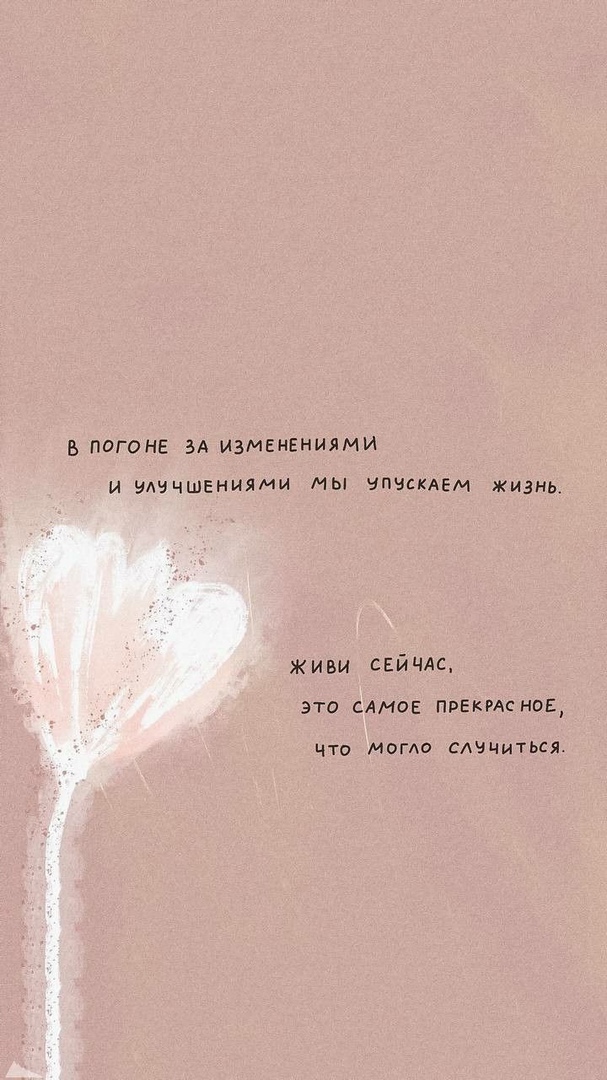 В ПОГОНЕ ЗА ИЗМЕНЕНИЯМИ
И УЛУЧШЕНИЯМИ МЫ УПУСКАЕМ ЖИЗНЬ.
ЖИВИ СЕЙЧАС,
ЭТО САМОЕ ПРЕКРАСНОЕ,
ЧТО МОГЛО СЛУЧИТЬСЯ.